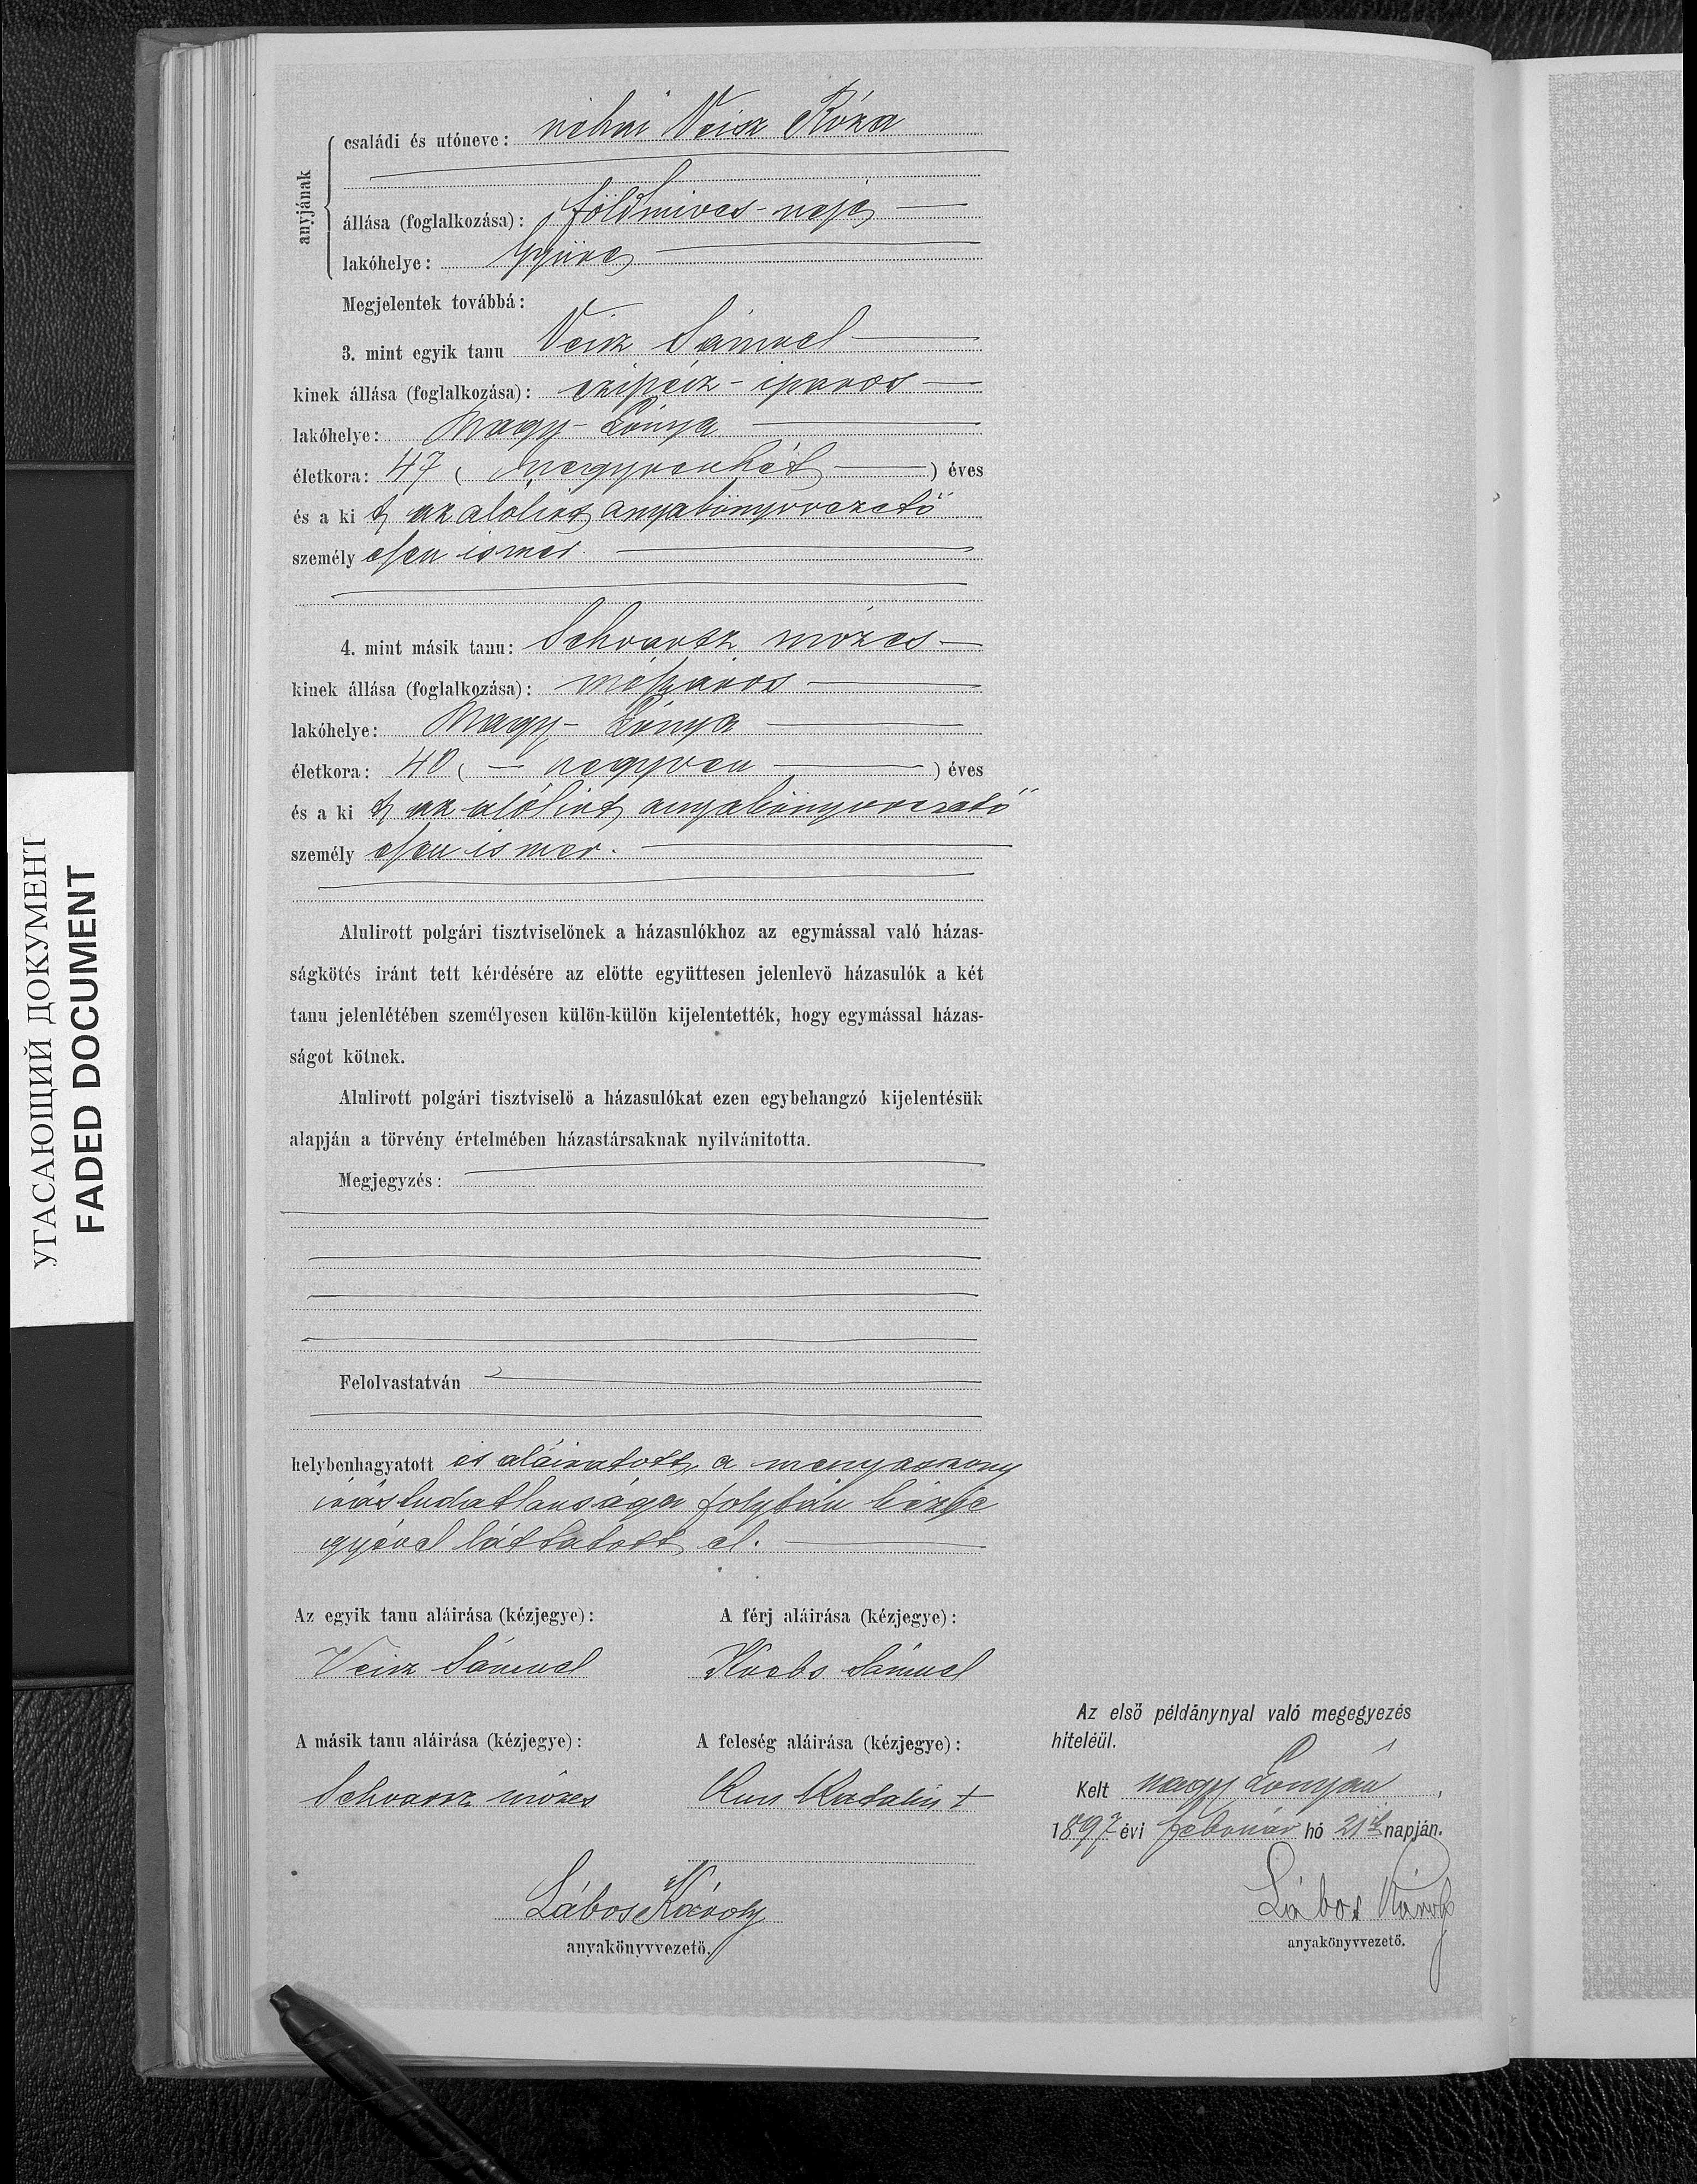 anyjának
családi és utóneve: néhai Veisz Róza
állása (foglalkozása): földmives-neje
lakóhelye: Gyüre
Megjelentek továbbá:
3. mint egyik tanu Veisz Sámuel
kinek állása (foglalkozása): czipész-iparos
lakóhelye: Nagy-Lónya
életkora: 47 ( negyvenhét ) éves
és a ki t az alólirt anyakönyvvezető
személy esen ismer.
4. mint másik tanu: Schvartz mózes
kinek állása (foglalkozása): mészáros
lakóhelye: Nagy-Lónya
életkora: 40 ( negyven ) éves
és a ki t az alólirt anyakönyvvezető
személy esen ismer.
Alulirott polgári tisztviselönek a házasulókhoz az egymással való házas-
ságkötés iránt tett kérdésére az elötte együttesen jelenlevö házasulók a két
tanu jelenlétében személyesen külön-külön kijelentették, hogy egymással házas-
ságot kötnek.
Alulirott polgári tisztviselö a házasulókat ezen egybehangzó kijelentésük
alapján a törvény értelmében házastársaknak nyilvánitotta.
Megjegyzés:
Felolvastatván
helybenhagyatott és aláiratott, a menyasszony
irástudatlansága folytán kézje
gyével láttatott el.
Az egyik tanu aláirása (kézjegye): A férj aláirása (kézjegye):
Veisz Sámuel Krebs Sámuel
A másik tanu aláirása (kézjegye): A feleség aláirása (kézjegye):
Schvarz mózes Kun Katalin +
Lábos Károly
anyakönyvvezető.
Az első példánynyal való megegyezés
hiteléül.
Kelt nagy Lónyán,
1897 évi február hó 21 napján.
Lábos Károly
anyakönyvvezető.
УГАСАЮЩИЙ ДОКУМЕНТ
FADED DOCUMENT